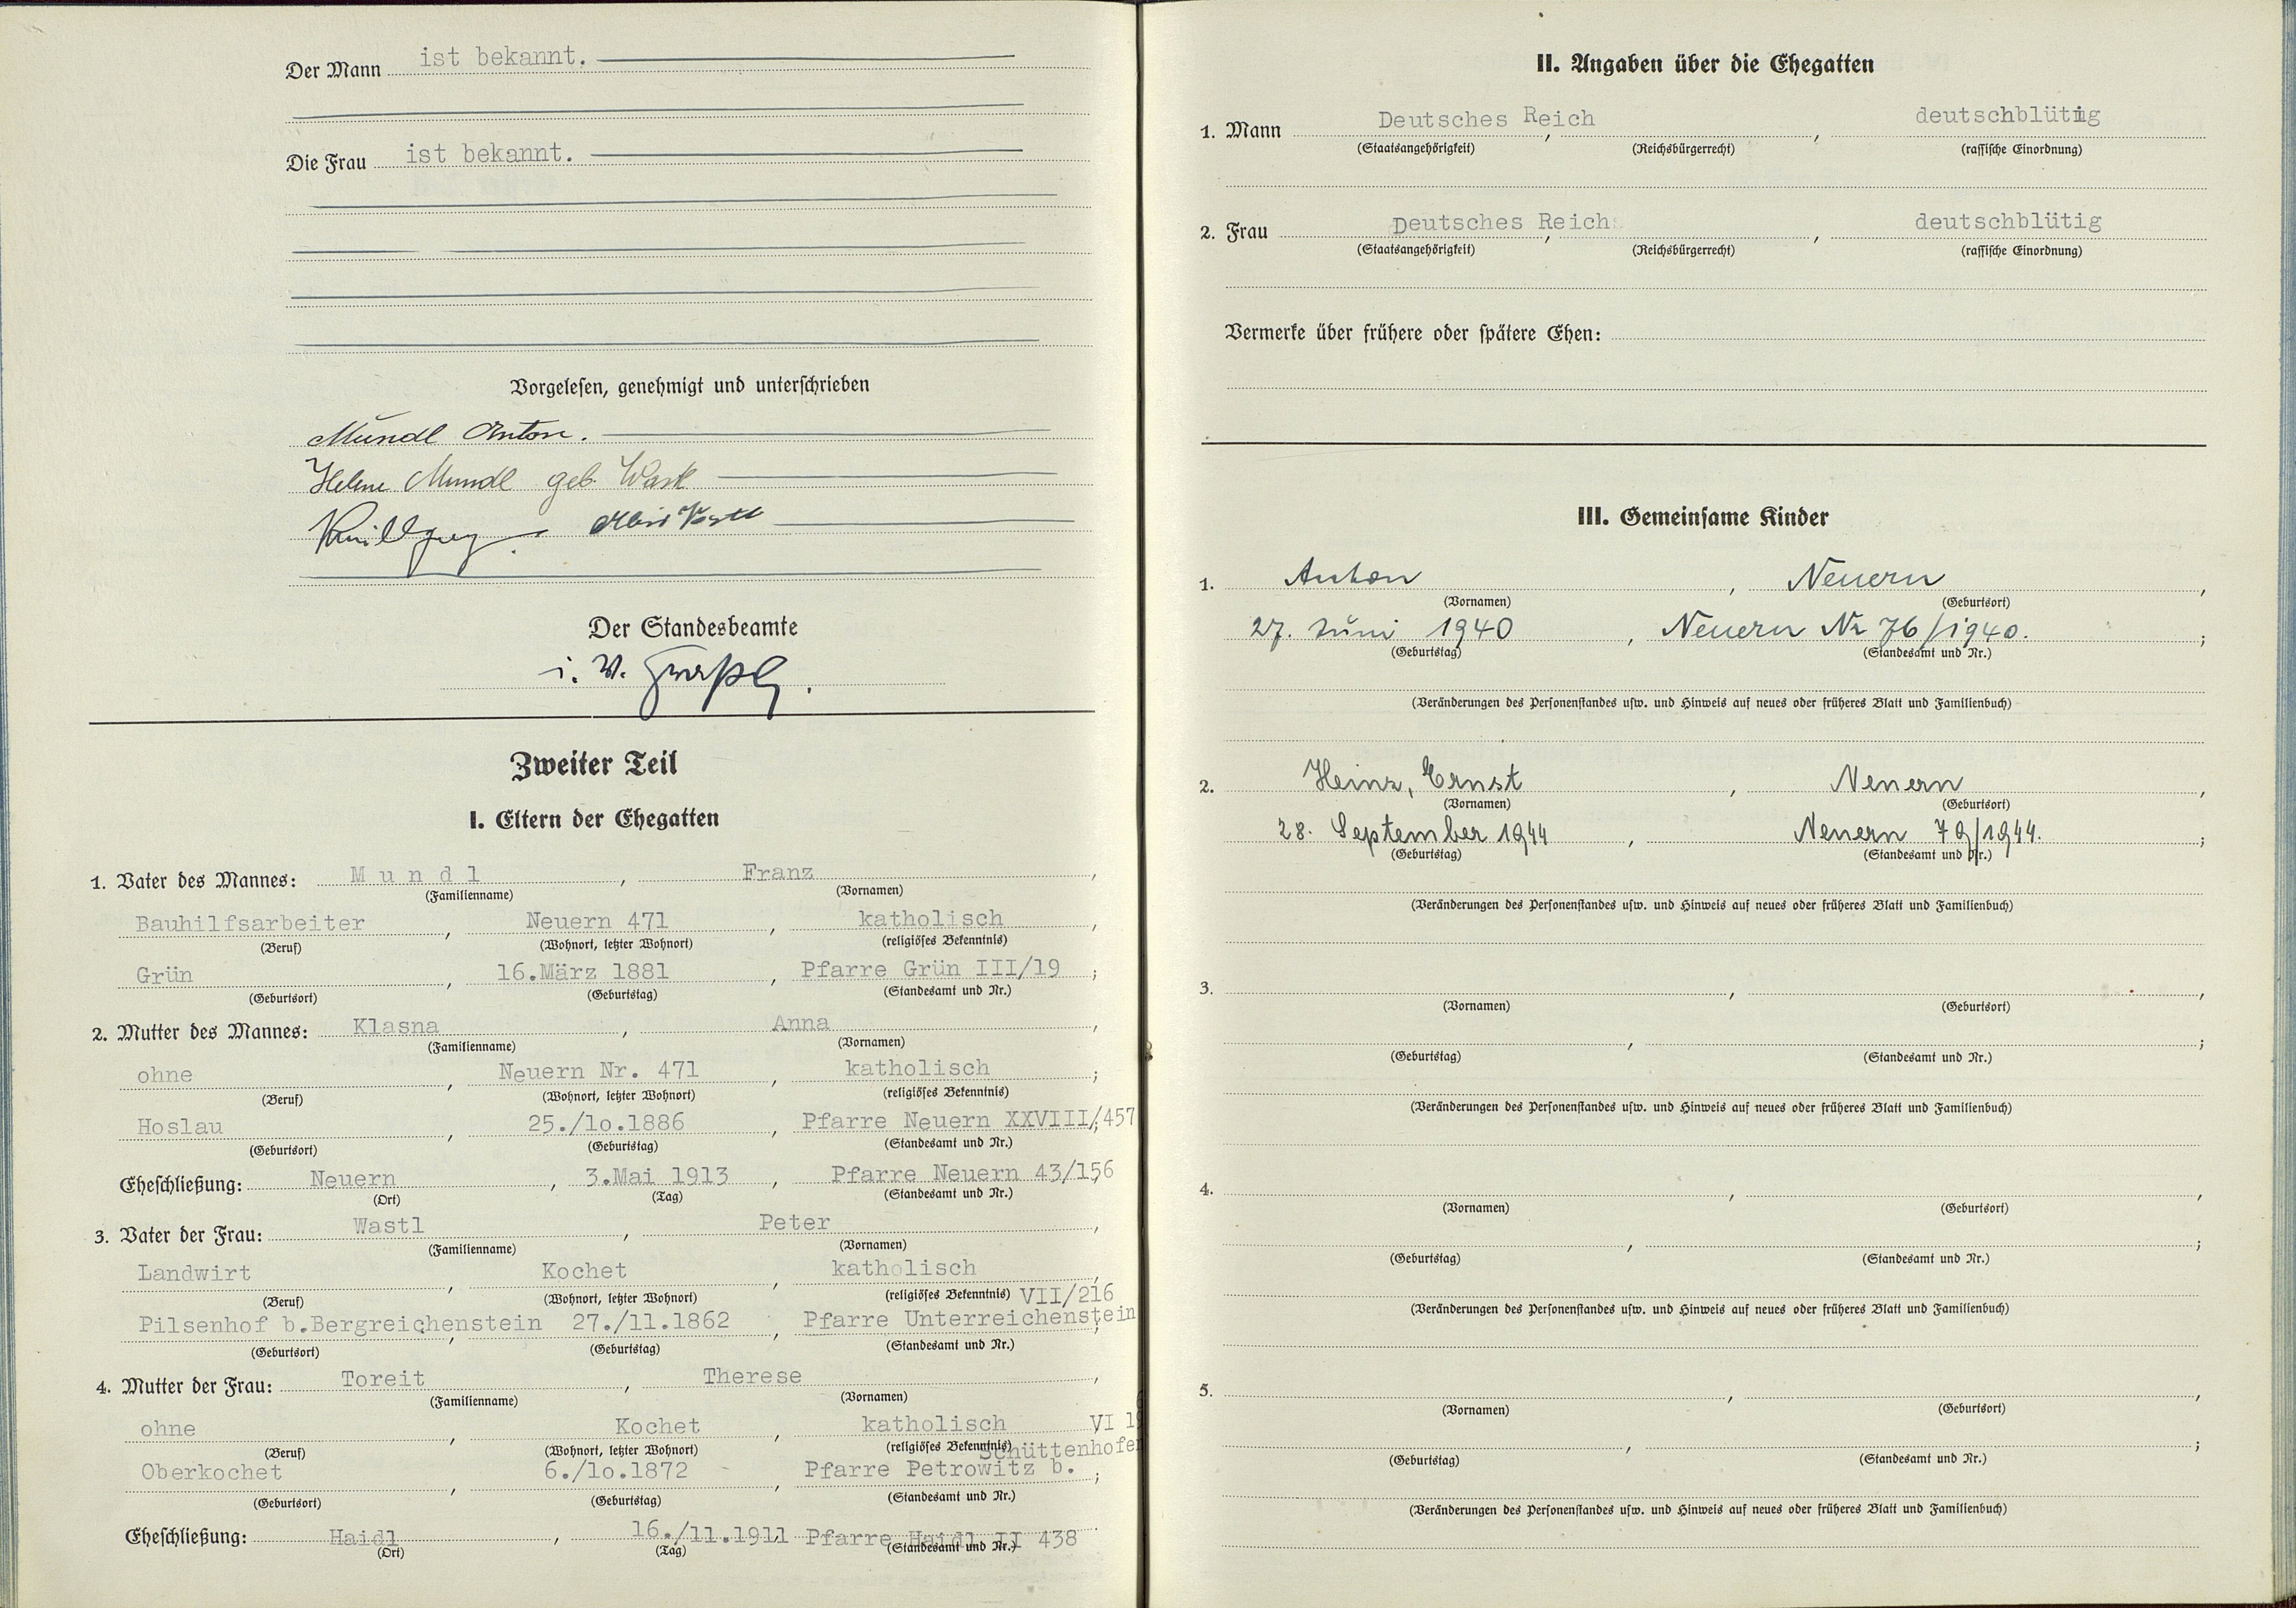 Der Mann ist bekannt.
Die Frau ist bekannt.
Vorgelesen, genehmigt und unterschrieben
Mundl Anton.
Helene Mundl geb. Wastl
Der Standesbeamte
i. V.
Zweiter Teil
I. Eltern der Ehegatten
1. Vater des Mannes: Mundl, Franz,
(Familienname) (Vornamen)
Bauhilfsarbeiter, Neuern 471, katholisch,
(Beruf) (Wohnort, letzter Wohnort) (religiöses Bekenntnis)
Grün, 16.März 1881, Pfarre Grün III/19;
(Geburtsort) (Geburtstag) (Standesamt und Nr.)
2. Mutter des Mannes: Klasna, Anna,
(Familienname) (Vornamen)
ohne, Neuern Nr. 471, katholisch;
(Beruf) (Wohnort, letzter Wohnort) (religiöses Bekenntnis)
Hoslau, 25./lo.1886, Pfarre Neuern XXVIII/457;
(Geburtsort) (Geburtstag) (Standesamt und Nr.)
Eheschließung: Neuern, 3.Mai 1913, Pfarre Neuern 43/156,
(Ort) (Tag) (Standesamt und Nr.)
3. Vater der Frau: Wastl, Peter,
(Familienname) (Vornamen)
Landwirt, Kochet, katholisch,
(Beruf) (Wohnort, letzter Wohnort) (religiöses Bekenntnis) VII/216
Pilsenhof b.Bergreichenstein, 27./11.1862, Pfarre Unterreichenstein;
(Geburtsort) (Geburtstag) (Standesamt und Nr.)
4. Mutter der Frau: Toreit, Therese,
(Familienname) (Vornamen)
ohne, Kochet, katholisch VI
(Beruf) (Wohnort, letzter Wohnort) (religiöses Bekenntnis) Schüttenhofen
Oberkochet, 6./lo.1872, Pfarre Petrowitz b.;
(Geburtsort) (Geburtstag) (Standesamt und Nr.)
Eheschließung: Haidl, 16./11.1911, Pfarre Haidl II 438
(Ort) (Tag) (Standesamt und Nr.)
II. Angaben über die Ehegatten
1. Mann Deutsches Reich, , deutschblütig
(Staatsangehörigkeit) (Reichsbürgerrecht) (rassische Einordnung)
2. Frau Deutsches Reich, , deutschblütig
(Staatsangehörigkeit) (Reichsbürgerrecht) (rassische Einordnung)
Vermerke über frühere oder spätere Ehen:
III. Gemeinsame Kinder
1. Anton, Neuern,
(Vornamen) (Geburtsort)
27. Juni 1940, Neuern Nr 76/1940.;
(Geburtstag) (Standesamt und Nr.)
(Veränderungen des Personenstandes usw. und Hinweis auf neues oder früheres Blatt und Familienbuch)
2. Heinz, Ernst, Neuern,
(Vornamen) (Geburtsort)
28. September 1944, Neuern 79/1944.;
(Geburtstag) (Standesamt und Nr.)
(Veränderungen des Personenstandes usw. und Hinweis auf neues oder früheres Blatt und Familienbuch)
3. , ,
(Vornamen) (Geburtsort)
, ;
(Geburtstag) (Standesamt und Nr.)
(Veränderungen des Personenstandes usw. und Hinweis auf neues oder früheres Blatt und Familienbuch)
4. , ,
(Vornamen) (Geburtsort)
, ;
(Geburtstag) (Standesamt und Nr.)
(Veränderungen des Personenstandes usw. und Hinweis auf neues oder früheres Blatt und Familienbuch)
5. , ,
(Vornamen) (Geburtsort)
, ;
(Geburtstag) (Standesamt und Nr.)
(Veränderungen des Personenstandes usw. und Hinweis auf neues oder früheres Blatt und Familienbuch)